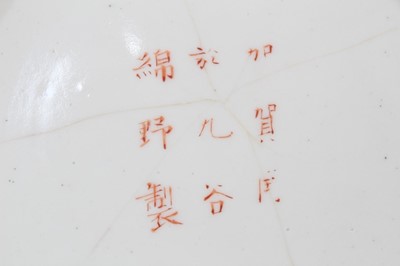 加賀国
於九谷
綿野製